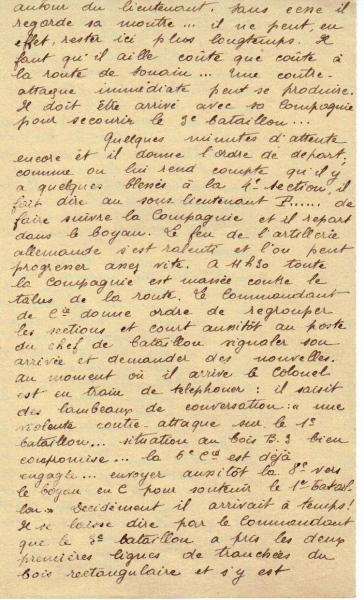 autour du lieutenant. Sans cesse il
regarde sa montre... il ne peut, en
effet, rester ici plus longtemps. Il
faut qu'il aille coûte que coûte à
la route de Souain... Une contre-
attaque immédiate peut se produire.
Il doit être arrivé avec sa Compagnie
pour secourir le 3e bataillon...
Quelques minutes d'attente
encore et il donne l'ordre de départ,
comme on lui rend compte qu'il y
a quelques blessés à la 4e section, il
fait dire au sous-lieutenant F...... de
faire suivre la Compagnie et il repart
dans le boyau. Le feu de l'artillerie
allemande s'est ralenti et l'on peut
progresser assez vite. A 11h30 toute
la Compagnie est massée contre le
talus de la route. Le Commandant
de Cie donne ordre de regrouper
les sections et court aussitôt au poste
du chef de bataillon signaler son
arrivée et demander des nouvelles.
Au moment où il arrive le Colonel
est en train de téléphoner : il saisit
des lambeaux de conversation : « une
violente contre-attaque sur le 1er
bataillon... situation au bois B.3 bien
compromise... la 6e Cie est déjà
engagée... envoyer aussitôt la 8e vers
le boyau en C pour soutenir le 1er batail-
lon » Décidément il arrivait à temps!
Il se laisse dire par le Commandant
que le 3e bataillon a pris les deux
premières lignes de tranchées du
bois rectangulaire et s'y est